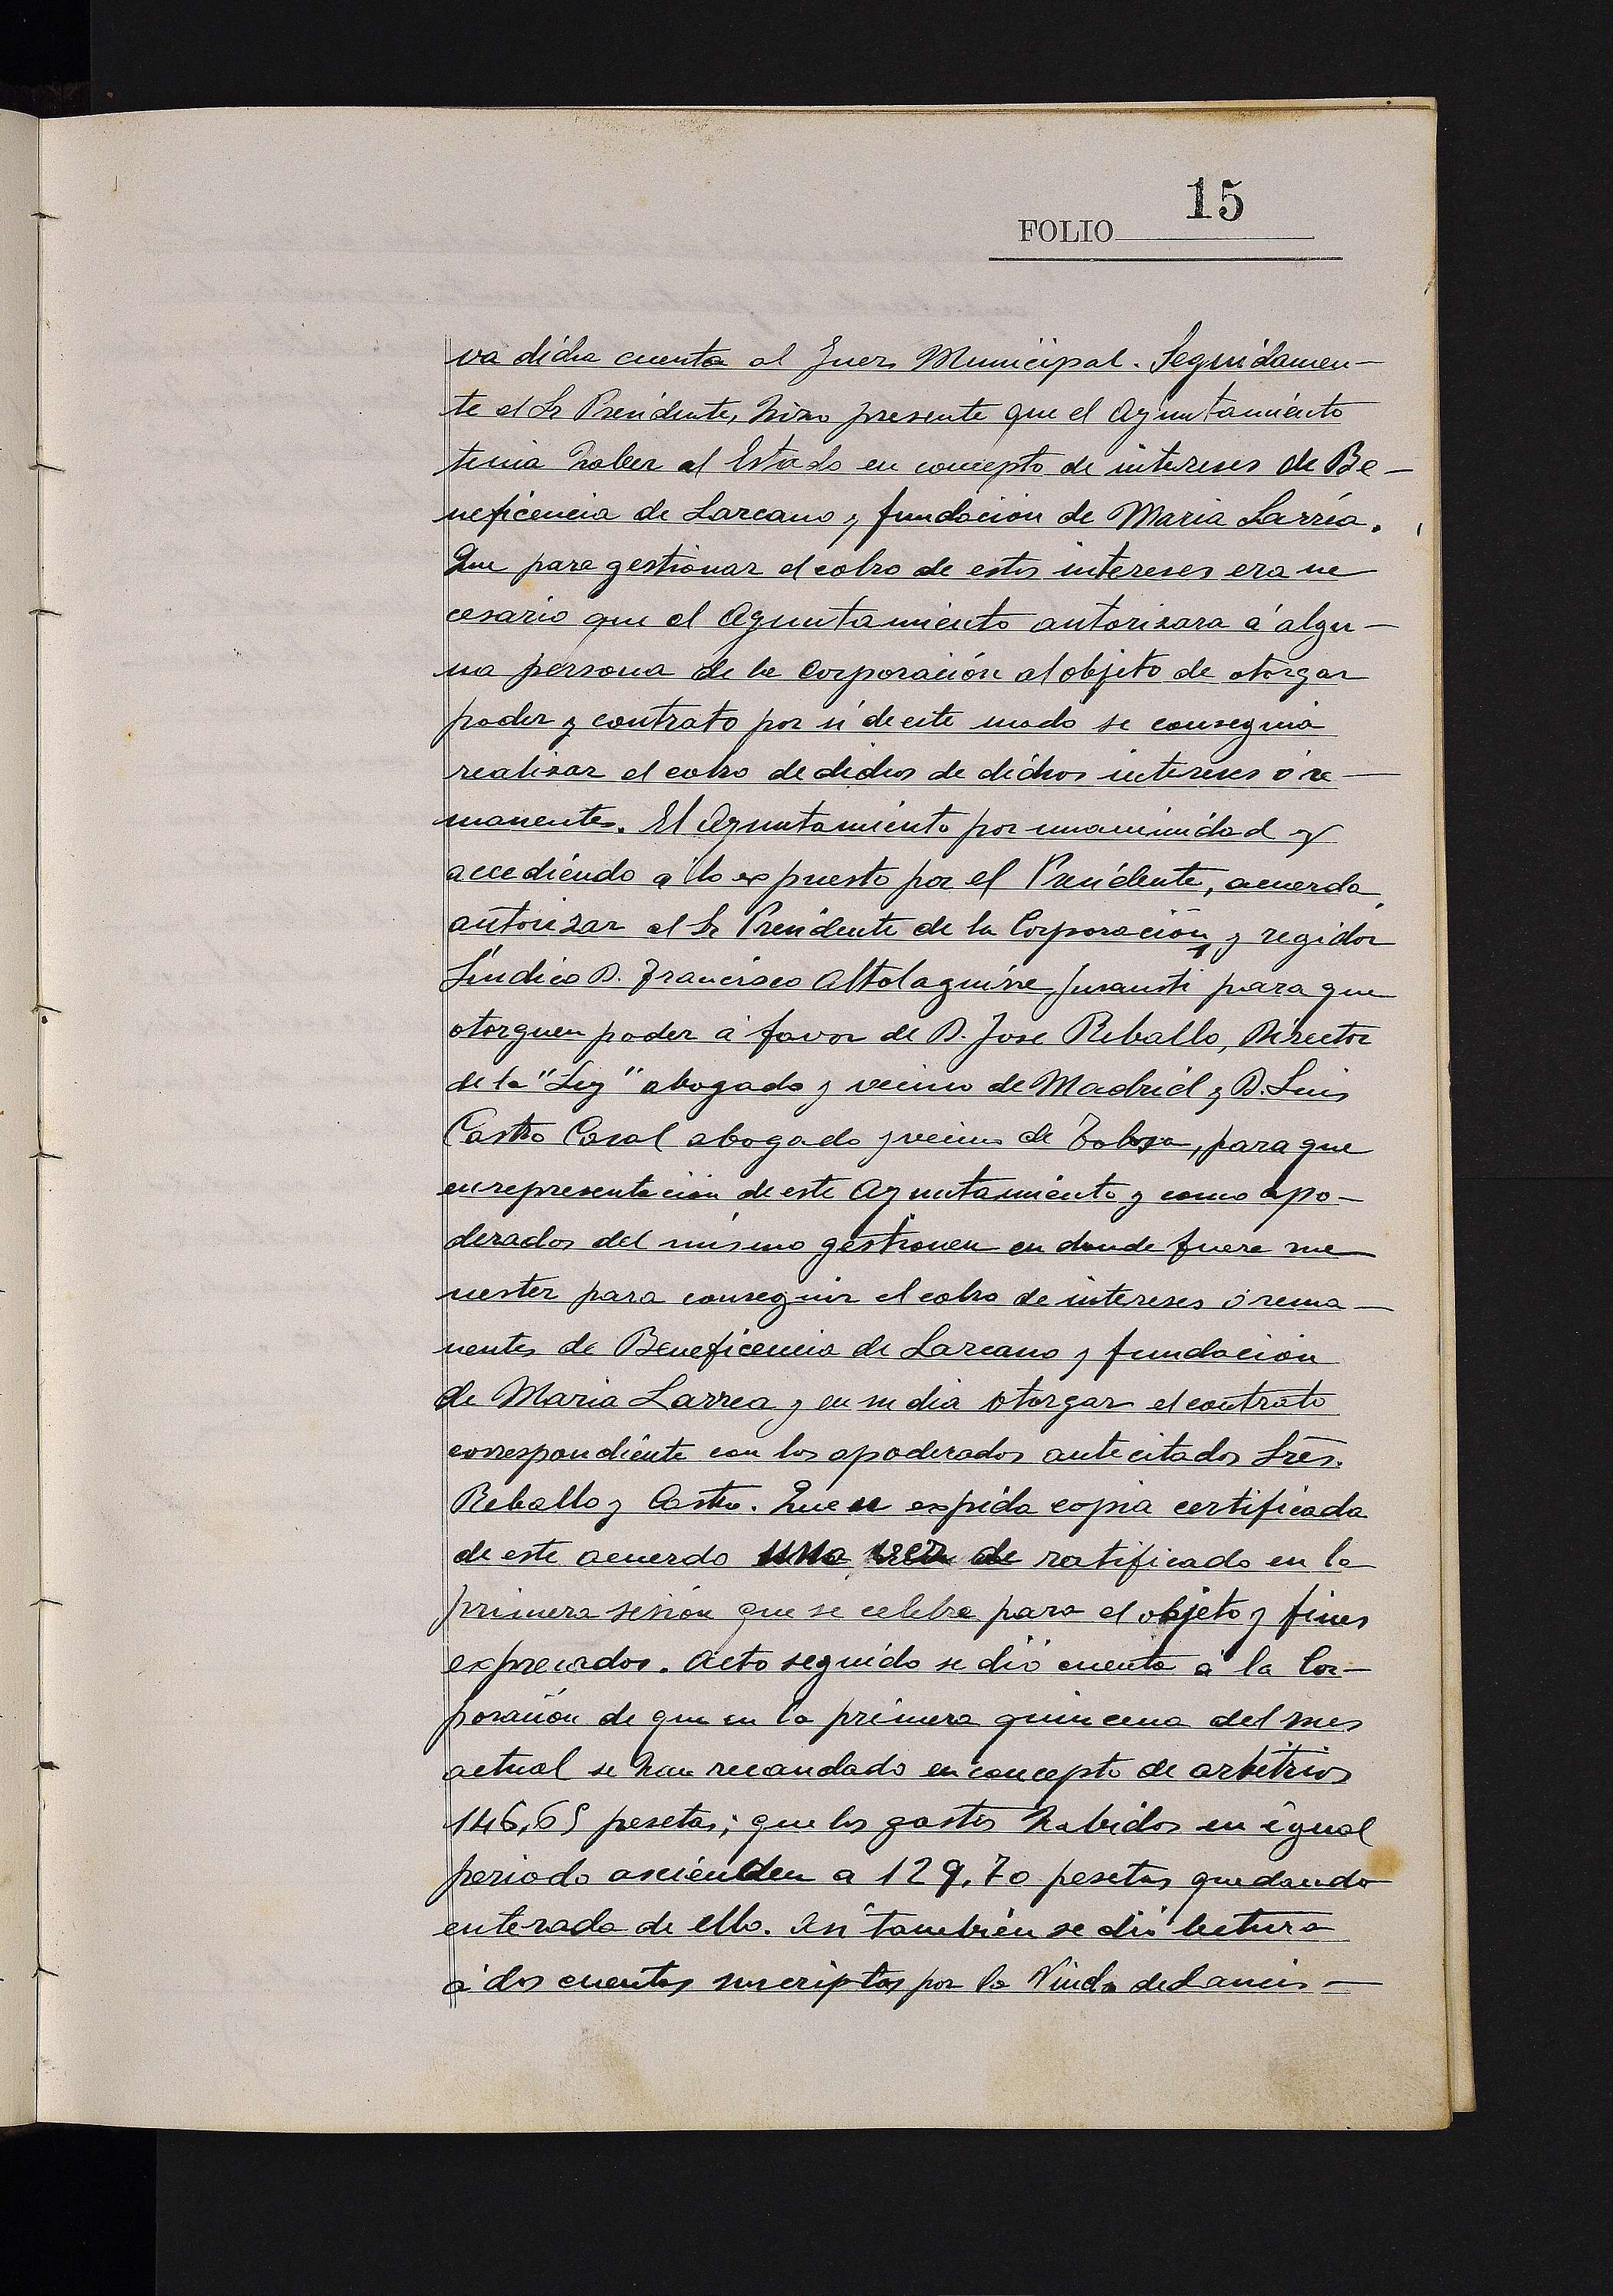 15
FOLIO
va dicha cuenta al Juez Municipal. Seguidamen-
te el Sr Presidente, hizo presente que el Ayuntamiento
tenia haber al Estado en concepto de intereses de Be-
neficencia de Lazcano y fundacion de Maria Larrea.
Que para gestionar el cobro de estos intereses era ne
cesario que el Ayuntamiento autorizara á algu-
na persona de la Corporación al objeto de otorgar
poder y contrato por si de este modo se conseguia
realizar el cobro de dichos de dichos intereses ó re-
manentes. El Ayuntamiento por unanimidad y
accediendo á lo expuesto por el Presidente, acuerda
autorizar al Sr Presidente de la Corporación y regidor
Sindico D. Francisco Altolaguirre Insausti para que
otorguen poder á favor de D. Jose Reballo, Director
de la "Ley" abogado y vecino de Madrid y D. Luis
Castro Casal abogado y vecino de Tolosa, para que
en representacion de este Ayuntamiento y como apo-
derados del mismo gestionen en donde fuere me
nester para conseguir el cobro de intereses ó rema-
nentes de Beneficencia de Lazcano y fundacion
de Maria Larrea y en su dia otorgar el contrato
correspondiente con los apoderados antecitados Sres.
Reballo y Castro. Que se expida copia certificada
de este acuerdo una vez de ratificado en la
primera sesión que se celebre para el objeto y fines
expresados. Acto seguido se dió cuenta á la Cor-
poración de que en la primera quincena del mes
actual se han recaudado en concepto de arbitrios
146,65 pesetas; que los gastos habidos en igual
periodo ascienden a 129.70 pesetas quedando
enterada de ello. Asi tambien se dió lectura
á dos cuentas suscriptas por la Viuda de